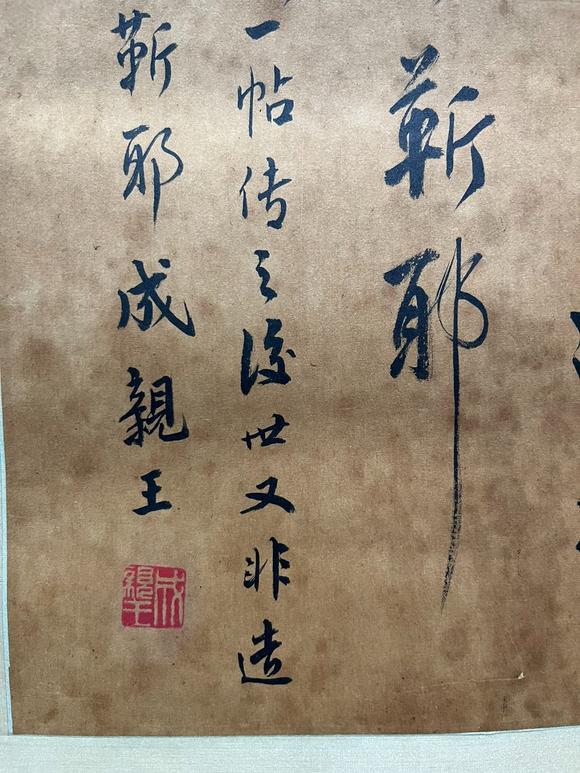 靳耶
一帖传之後世又非造
靳耶成親王
成親王